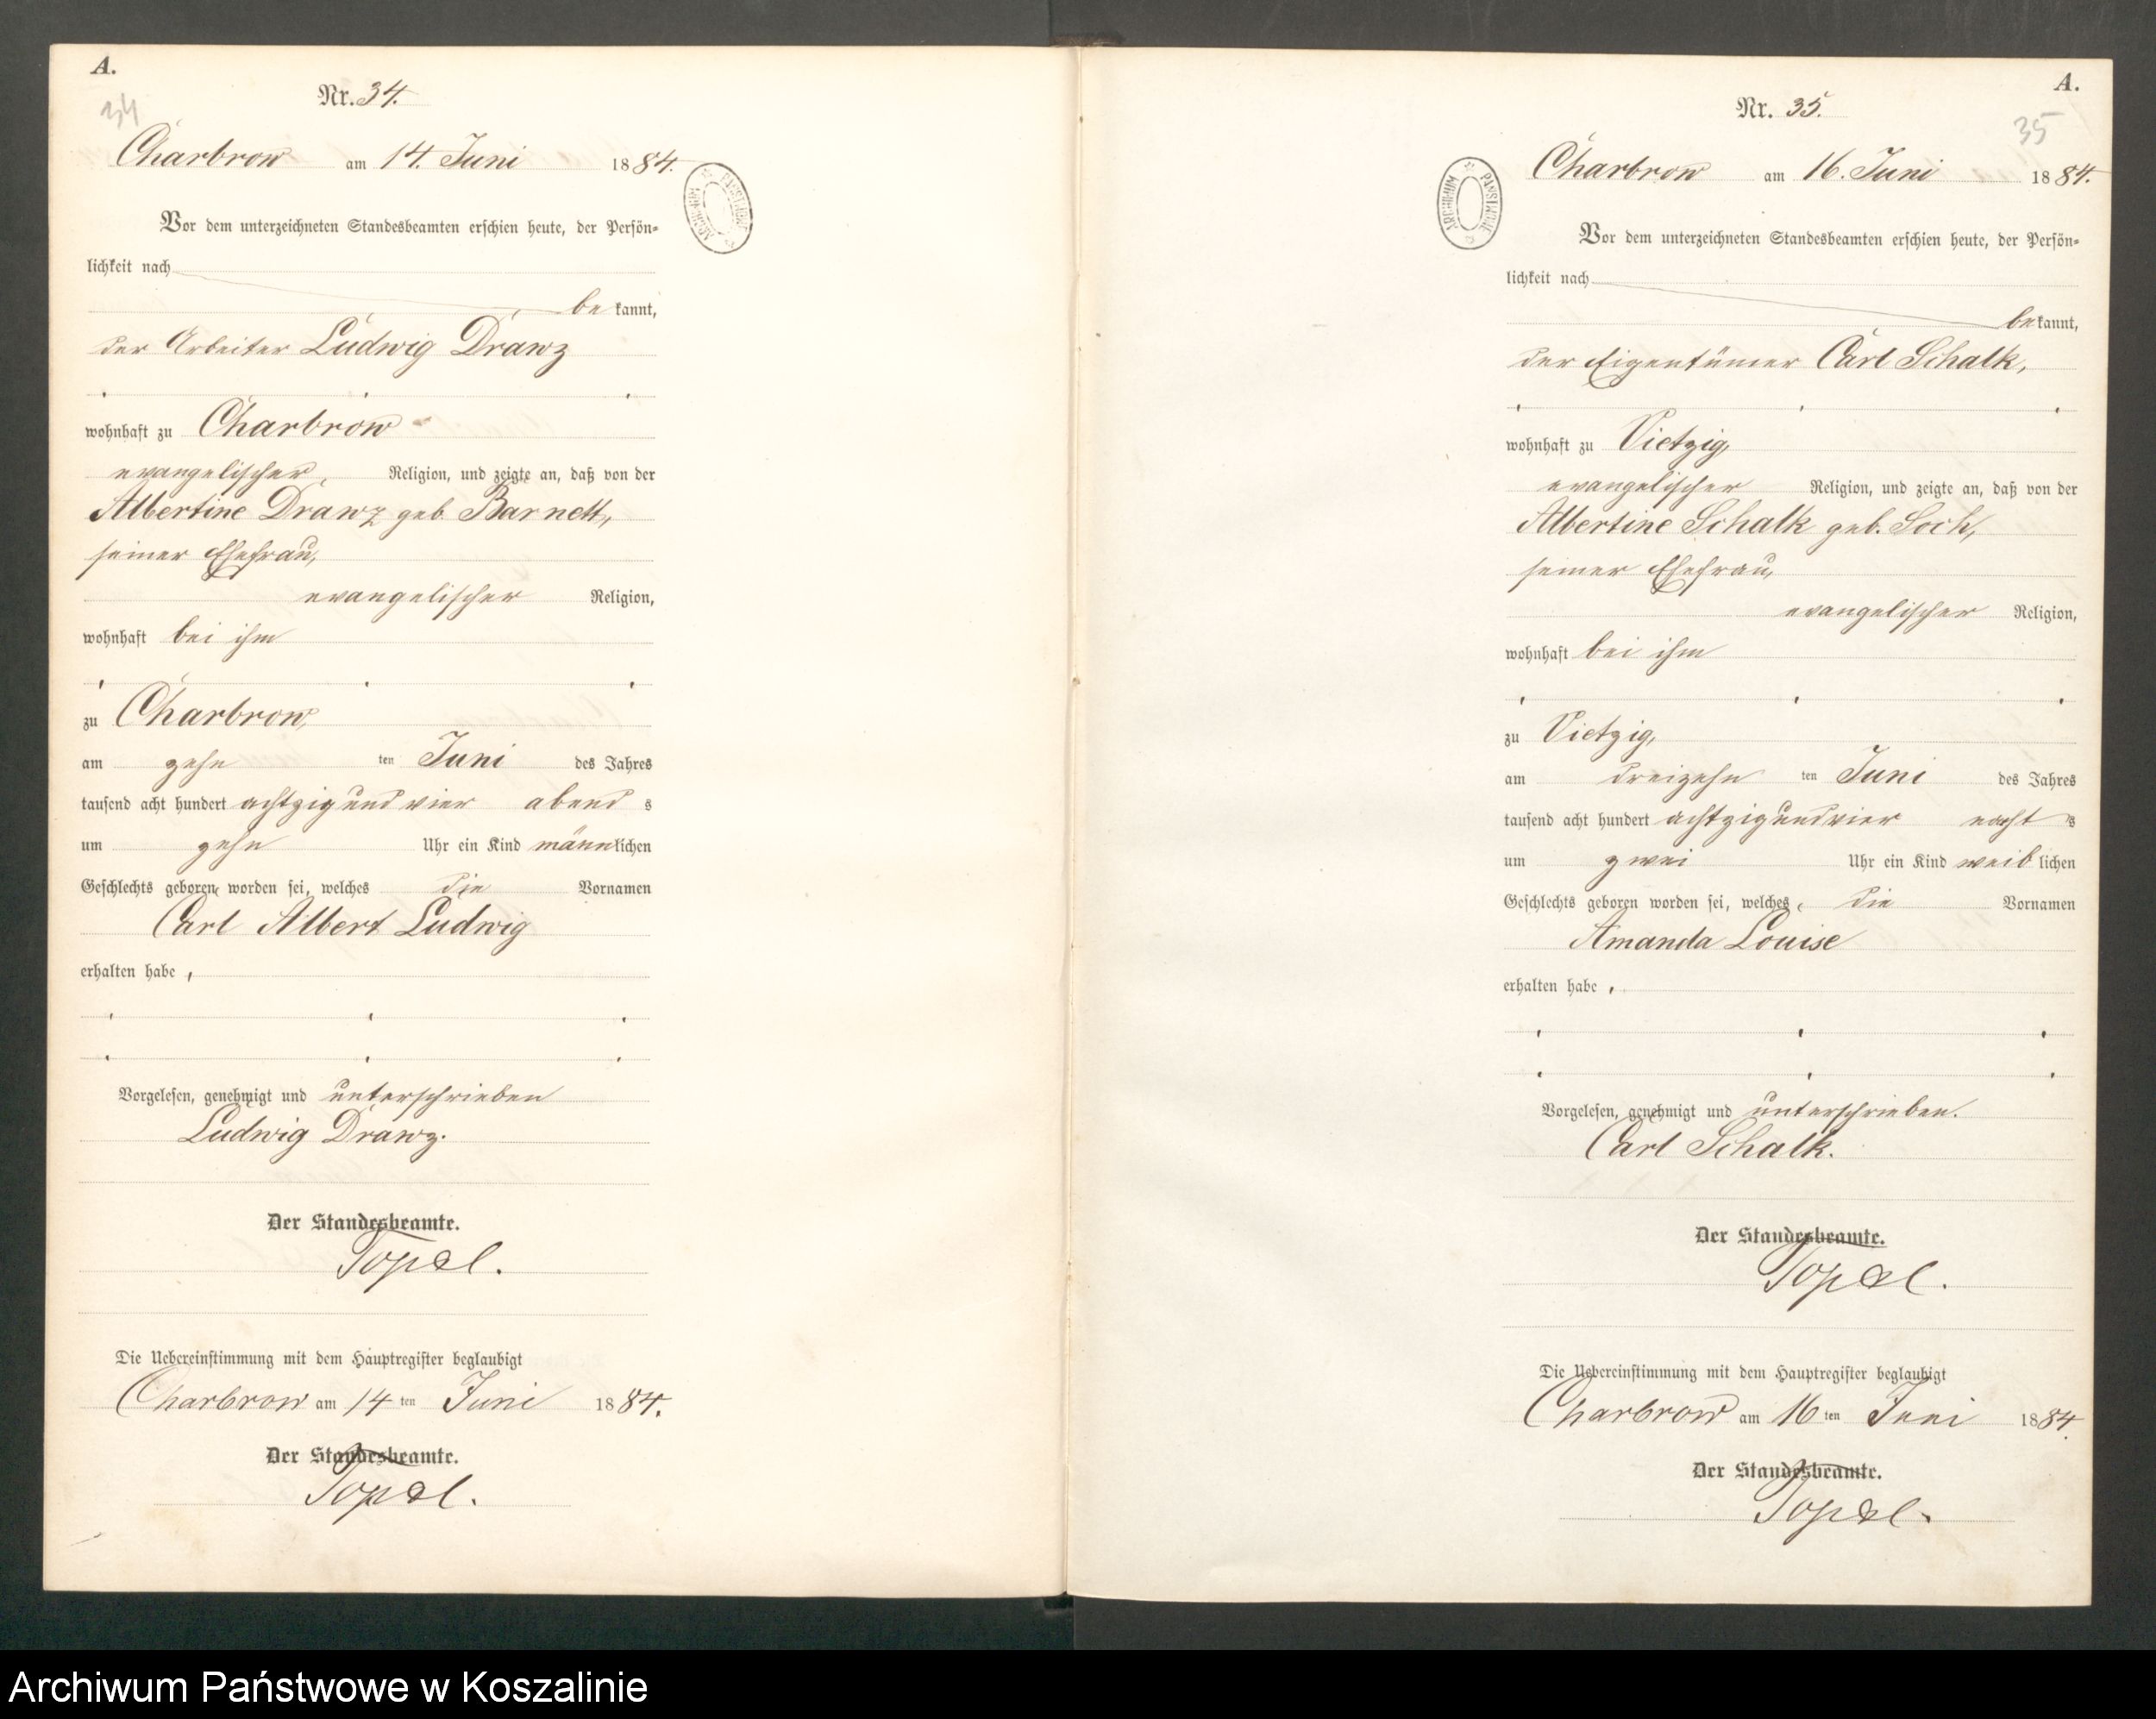 A.
34
Nr. 34.
Charbrow am 14. Juni 1884.
ARCHIWUM PAŃSTWOWE
Vor dem unterzeichneten Standesbeamten erschien heute, der Persön-
lichkeit nach
bekannt,
der Arbeiter Ludwig Drawz
wohnhaft zu Charbrow
evangelischer, Religion, und zeigte an, daß von der
Albertine Drawz geb. Barnett,
seiner Ehefrau,
evangelischer Religion,
wohnhaft bei ihm
zu Charbrow,
am zehn ten Juni des Jahres
tausend acht hundert achtzig und vier abends
um zehn Uhr ein Kind männlichen
Geschlechts geboren worden sei, welches die Vornamen
Carl Albert Ludwig
erhalten habe,
Vorgelesen, genehmigt und unterschrieben
Ludwig Drawz.
Der Standesbeamte.
Topel.
Die Uebereinstimmung mit dem Hauptregister beglaubigt
Charbrow am 14ten Juni 1884.
Der Standesbeamte.
Topel.
A.
35
Nr. 35.
Charbrow am 16. Juni 1884.
ARCHIWUM PAŃSTWOWE
Vor dem unterzeichneten Standesbeamten erschien heute, der Persön-
lichkeit nach
bekannt,
der Eigentümer Carl Schalk,
wohnhaft zu Vietzig,
evangelischer Religion, und zeigte an, daß von der
Albertine Schalk geb. Soch,
seiner Ehefrau,
evangelischer Religion,
wohnhaft bei ihm
zu Vietzig,
am dreizehn ten Juni des Jahres
tausend acht hundert achtzig und vier nachts
um zwei Uhr ein Kind weiblichen
Geschlechts geboren worden sei, welches die Vornamen
Amanda Louise
erhalten habe,
Vorgelesen, genehmigt und unterschrieben.
Carl Schalk.
Der Standesbeamte.
Topel.
Die Uebereinstimmung mit dem Hauptregister beglaubigt
Charbrow am 16ten Juni 1884.
Der Standesbeamte.
Topel.
Archiwum Państwowe w Koszalinie